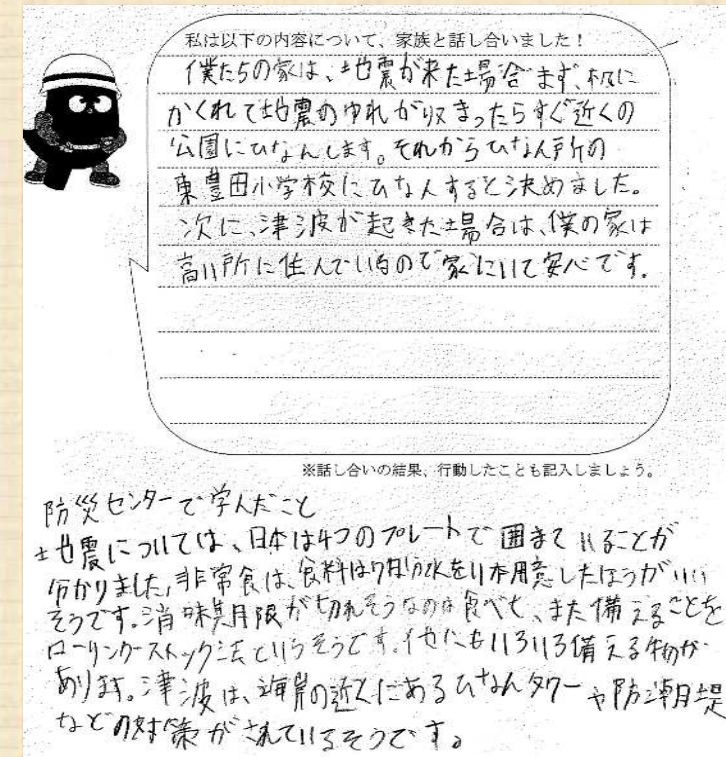 私は以下の内容について、家族と話し合いました！
僕たちの家は、地震が来た場合まず、机に
かくれて地震のゆれが収まったらすぐ近くの
公園にひなんします。それからひなん所の
東豊田小学校にひなんすると決めました。
次に、津波が起きた場合は、僕の家は
高い所に住んでいるので家にいて安心です。
※話し合いの結果、行動したことも記入しましょう。
防災センターで学んだこと
地震については、日本は4つのプレートで囲まていることが
分かりました,非常食は、食料は7日分水を 本用意したほうがいい
そうです。消味期限が切れそうなのは食べて、また備えることを
ローリングストック法というそうです。他にもいろいろ備える物が
あります。津波は、海岸の近くにあるひなんタワーや防潮堤
などの対策がされているそうです。